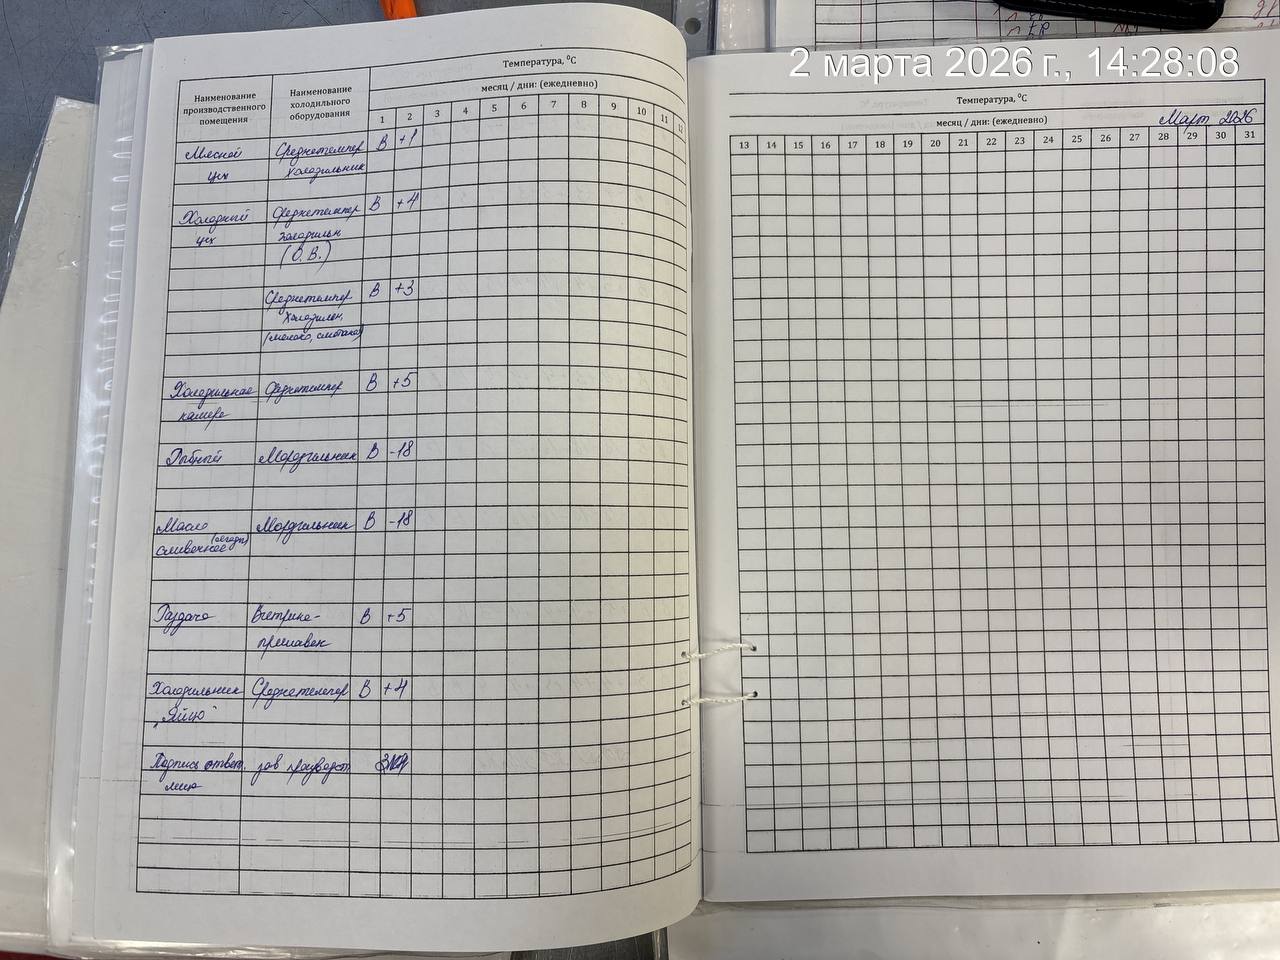 2 марта 2026 г., 14:28:08
Температура, ⁰С
Наименование производственного помещения
Наименование холодильного оборудования
месяц / дни: (ежедневно)
1 2 3 4 5 6 7 8 9 10 11 12
Мясной Среднетемпер В +1
цех холодильник
Холодный Среднетемпер В +4
цех холодильн
(О.В.)
Среднетемпер В +3
холодильн,
(молоко, сметана)
Холодильная Среднетемпер В +5
камера
Рыбный Морозильник В -18
Масло Морозильник В -18
сливочное
Раздача Витрина- В +5
прилавок
Холодильник Среднетемпер В +4
"Яйцо"
Подпись ответ. зав производст
лица
Температура, ⁰С
месяц / дни: (ежедневно) Март 2026
13 14 15 16 17 18 19 20 21 22 23 24 25 26 27 28 29 30 31